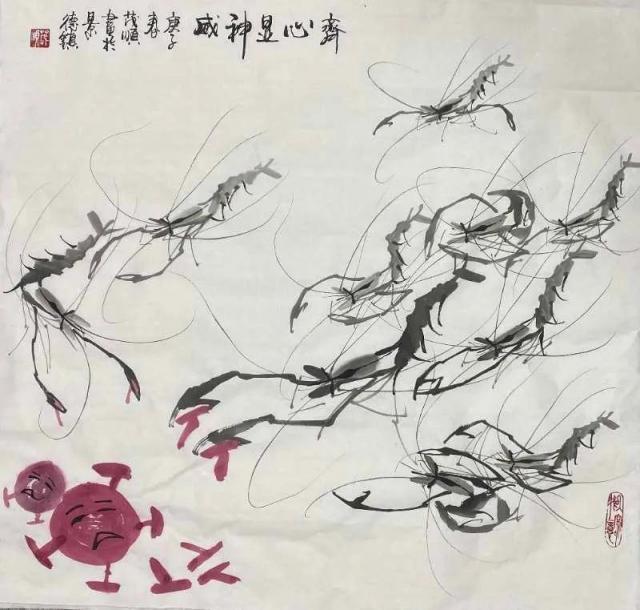 齊心显神威
庚子
春
茂順
畫於
景
德鎮